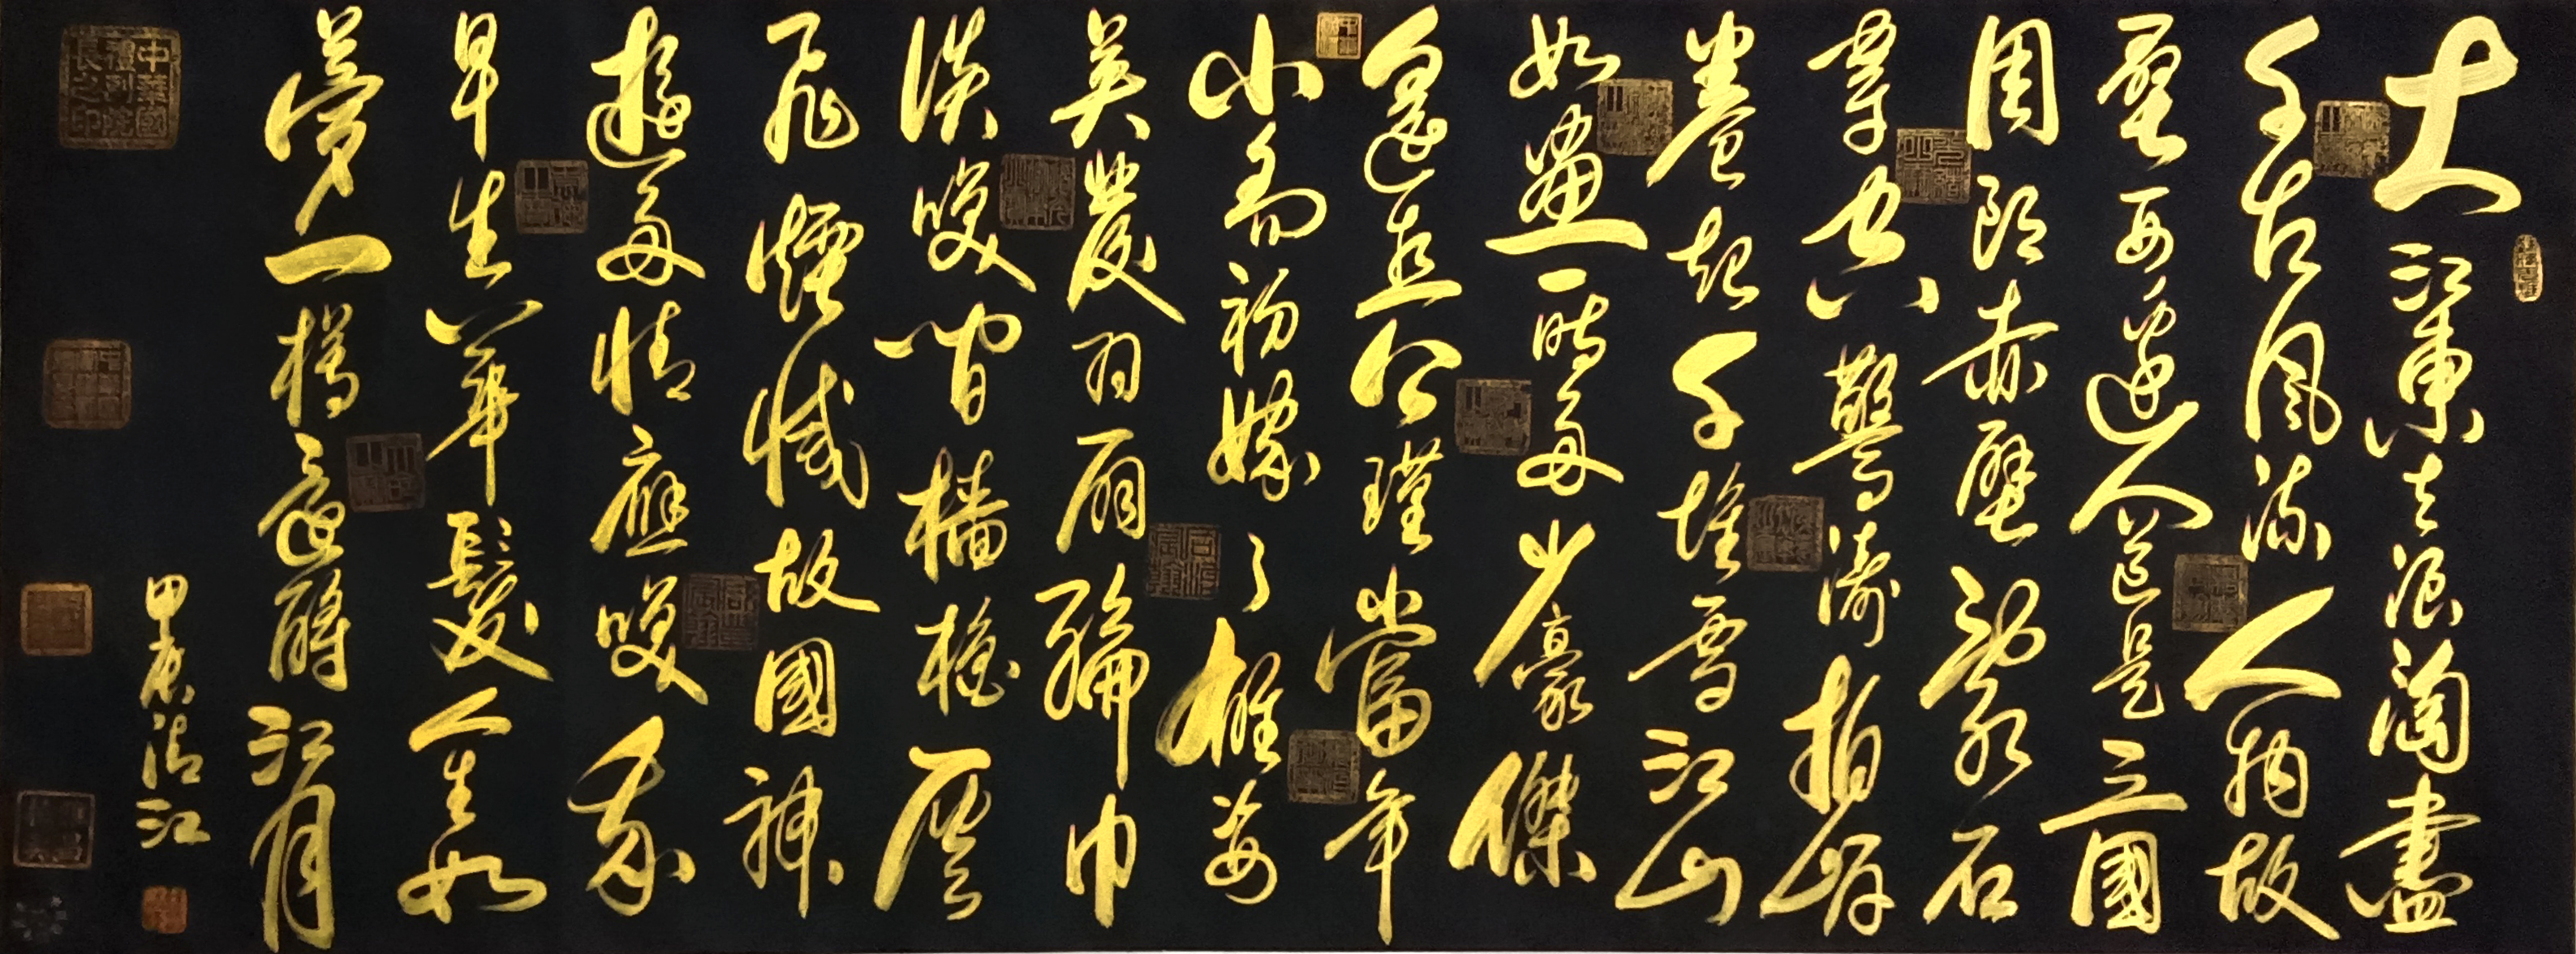 大江東去浪淘盡
千古風流人物故
壘西邊人道是三國
周郎赤壁亂石
穿空驚濤拍岸
卷起千堆雪江山
如畫一時多少豪傑
遙想公瑾當年
小喬初嫁了雄姿
英發羽扇綸巾
談笑間檣櫓灰
飛煙滅故國神
遊多情應笑我
早生華髮人生如
夢一樽還酹江月
甲辰清江
中華國
長之印